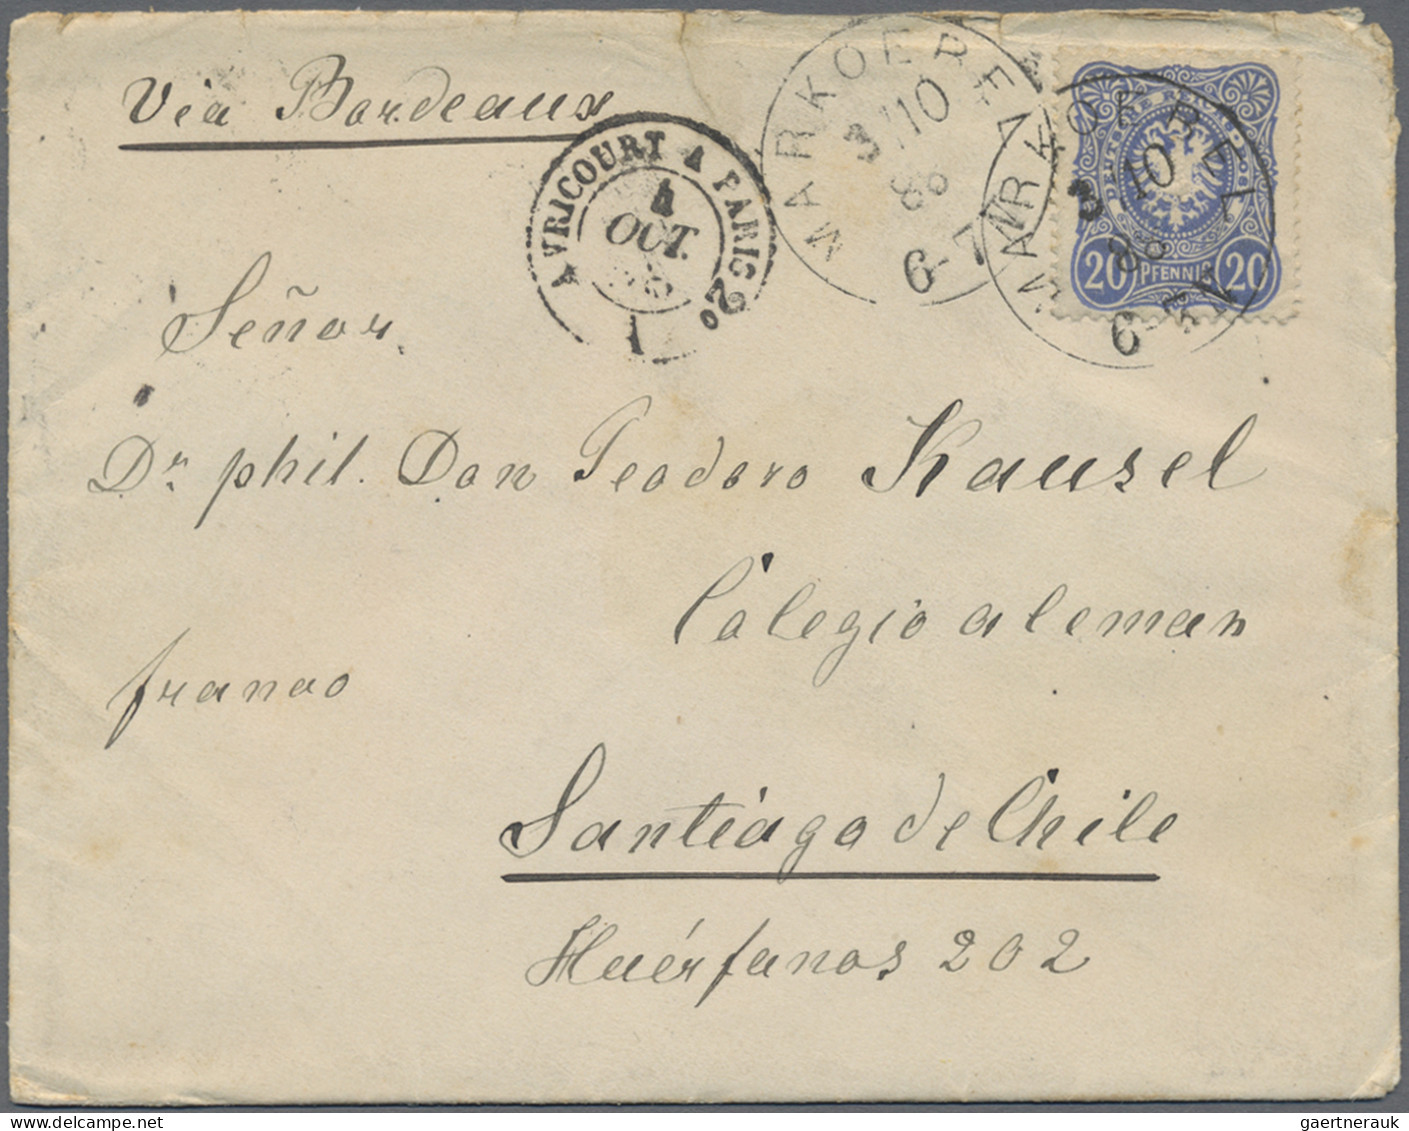 Via Bordeaux
AVRICOURT A PARIS 2º
4
OCT.
1
MARKOEBEL
3/10
88
6-7N
MARKOEBEL
3/10
88
6-7N
DEUTSCHE REICHS-POST
20 PFENNIG 20
Señor
Dr phil. Don Teodoro Kausel
Colegio aleman
franco
Santiago de Chile
Huérfanos 202
gaertnerauk